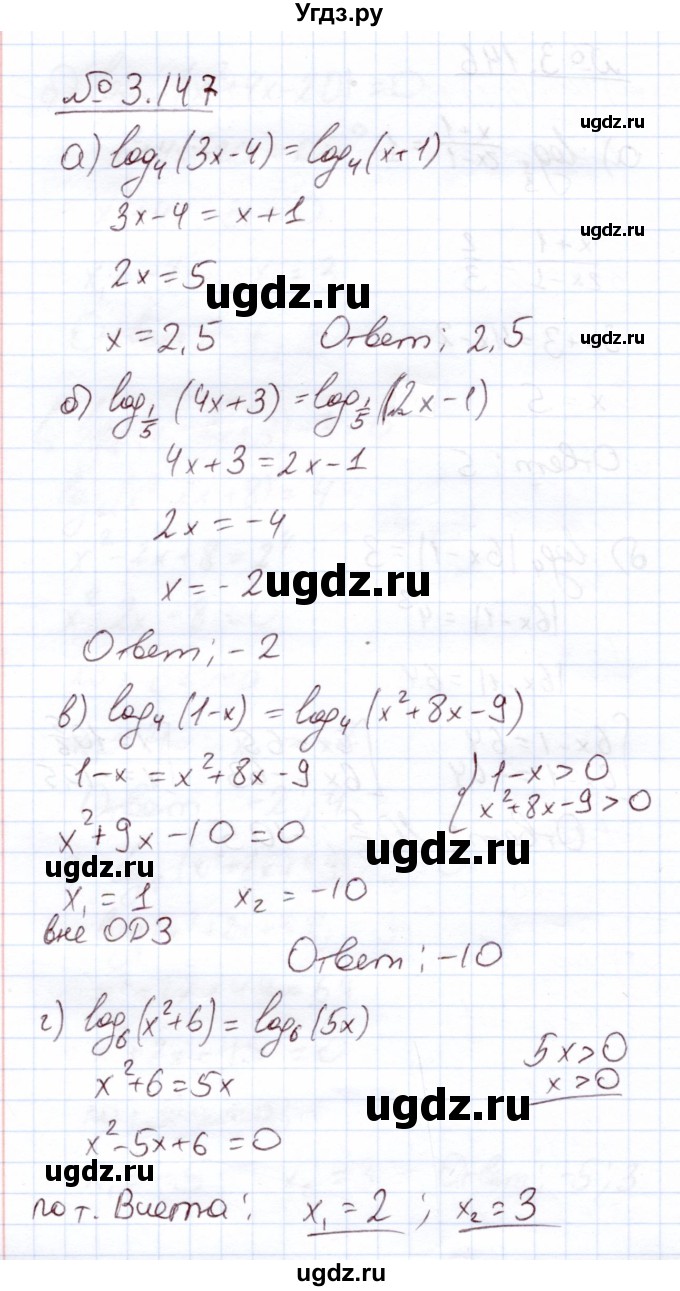 Угдз.ру
№ 3.147
ugdz.ru
а) log₄(3x-4) = log₄(x+1)
ugdz.ru
3x-4 = x+1
ugdz.ru
2x = 5
ugdz.ru
x = 2,5 Ответ: 2,5
ugdz.ru
б) log_{1/5}(4x+3) = log_{1/5}(2x-1)
4x+3 = 2x-1
2x = -4
x = -2
ugdz.ru
Ответ: -2
в) log₄(1-x) = log₄(x²+8x-9)
1-x = x²+8x-9 { 1-x>0
x²+8x-9>0
x²+9x-10=0
ugdz.ru
ugdz.ru
x₁ = 1 x₂ = -10
вне ОДЗ
Ответ: -10
г) log₆(x²+6) = log₆(5x)
5x>0
x²+6=5x x>0
ugdz.ru
x²-5x+6=0
ugdz.ru
по т. Виета: x₁=2 ; x₂=3
ugdz.ru